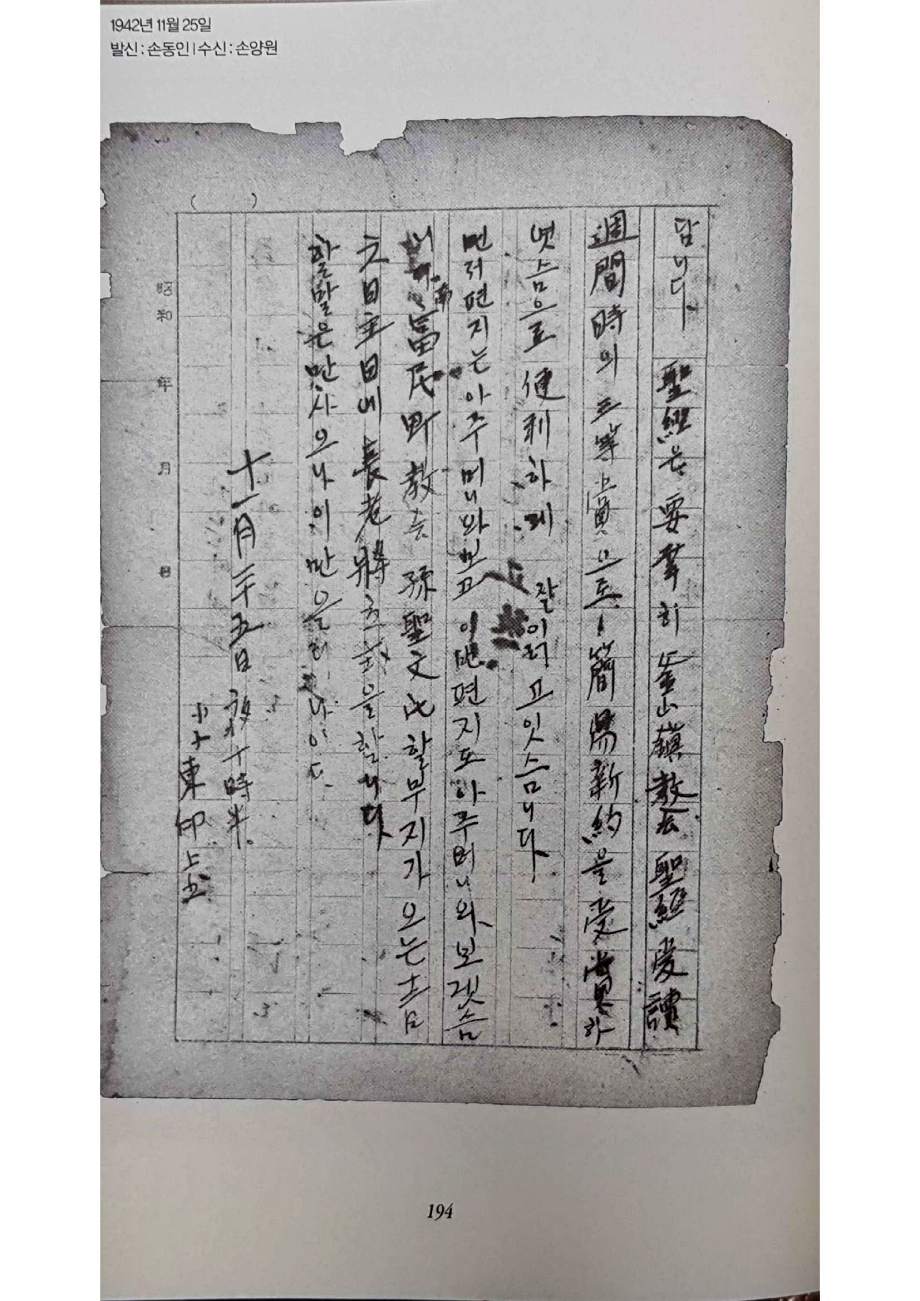 1942년 11월 25일
발신 : 손동인 | 수신 : 손양원
( )
답니다. 聖經은 要幸히 釜山鎭教会 聖經愛讀
週間時의 三等賞으로 簡易新約을 受賞하
엿슴으로 便利하게 잘 이러고 잇슴니다.
먼저 편지는 아주머니와 보고 이번 편지도 아주머니와 보겟슴
니다. 富民町教会 孫聖文氏 할부지가 오는 十二月
六日 主日에 長老將立式을 할니다.
할 말은 만사오나 이만 올리나이다.
十一月 二十五日 夜 十時半.
小子 東印 上書
昭和 年 月 日
194